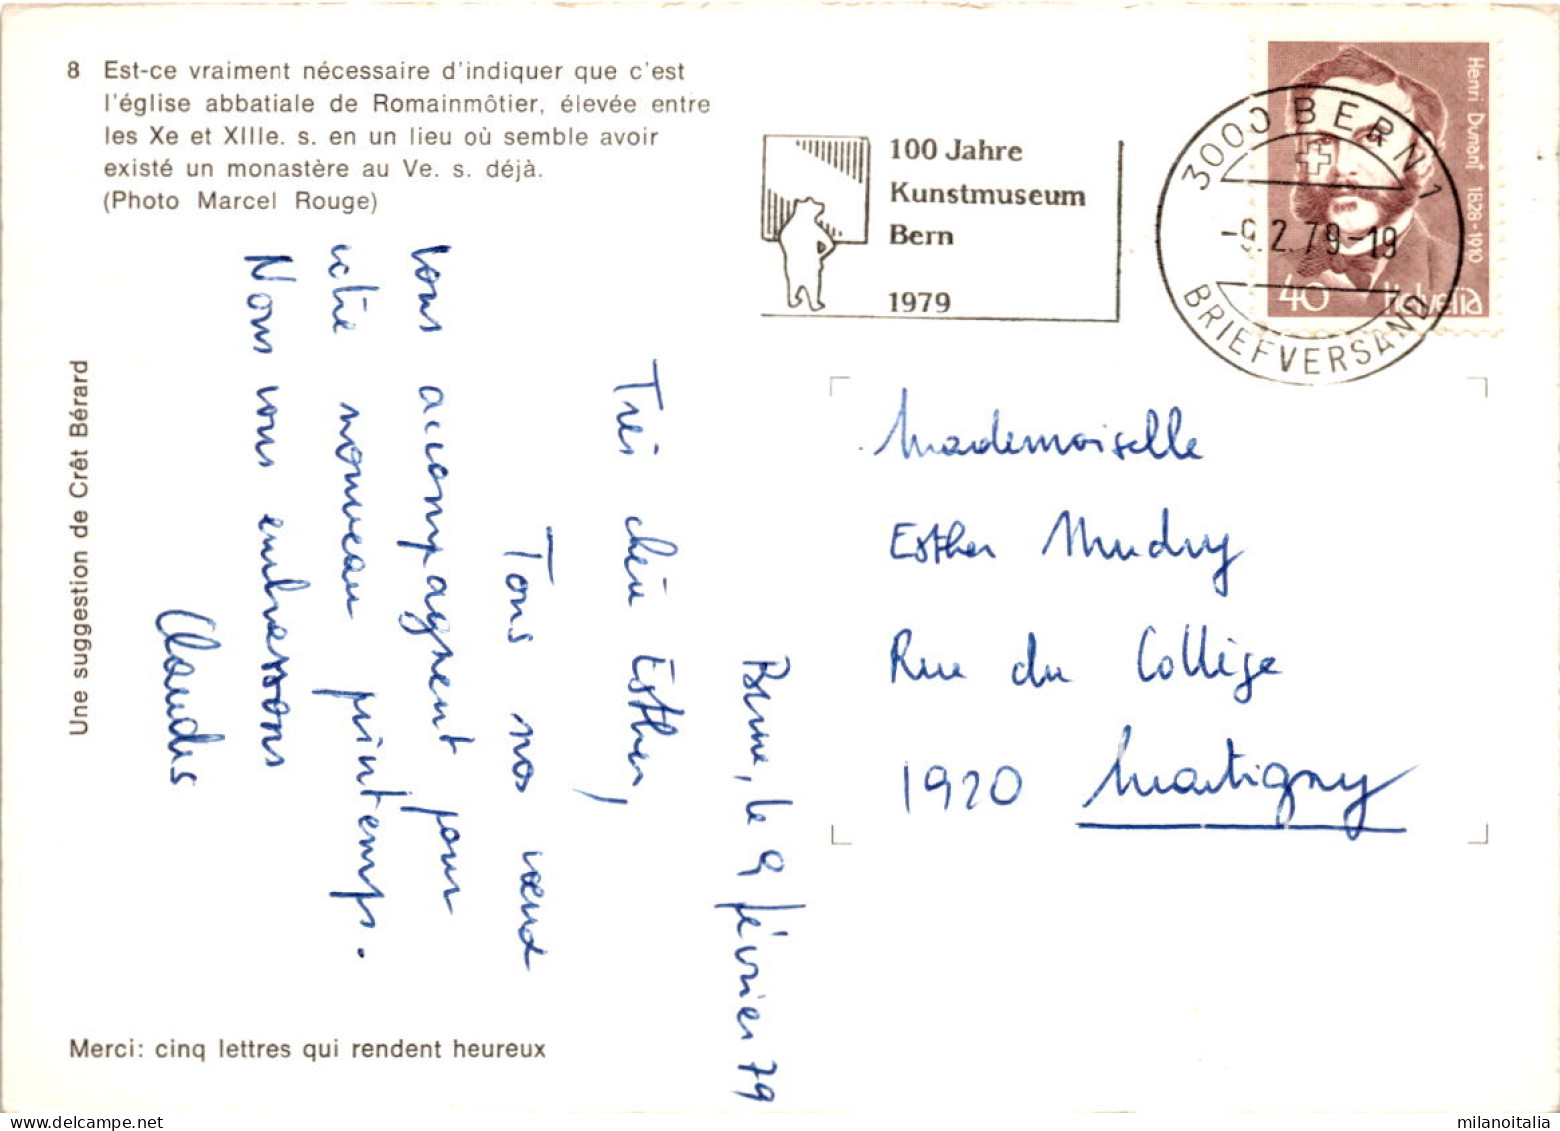 8 Est-ce vraiment nécessaire d'indiquer que c'est
l'église abbatiale de Romainmôtier, élevée entre
les Xe et XIIIe. s. en un lieu où semble avoir
existé un monastère au Ve. s. déjà.
(Photo Marcel Rouge)
Une suggestion de Crêt Bérard
Merci: cinq lettres qui rendent heureux
100 Jahre
Kunstmuseum
Bern
1979
3000 BERN 1
-9.2.79-19
BRIEFVERSAND
Henri Dunant 1828-1910
40 Helvetia
Berne, le 9 février 79
Très chère Esther,
Tous nos vœux
vous accompagnent pour
votre nouveau printemps.
Nous vous embrassons
Claudes
Mademoiselle
Esther Mudry
Rue du Collège
1920 Martigny
milanoitalia